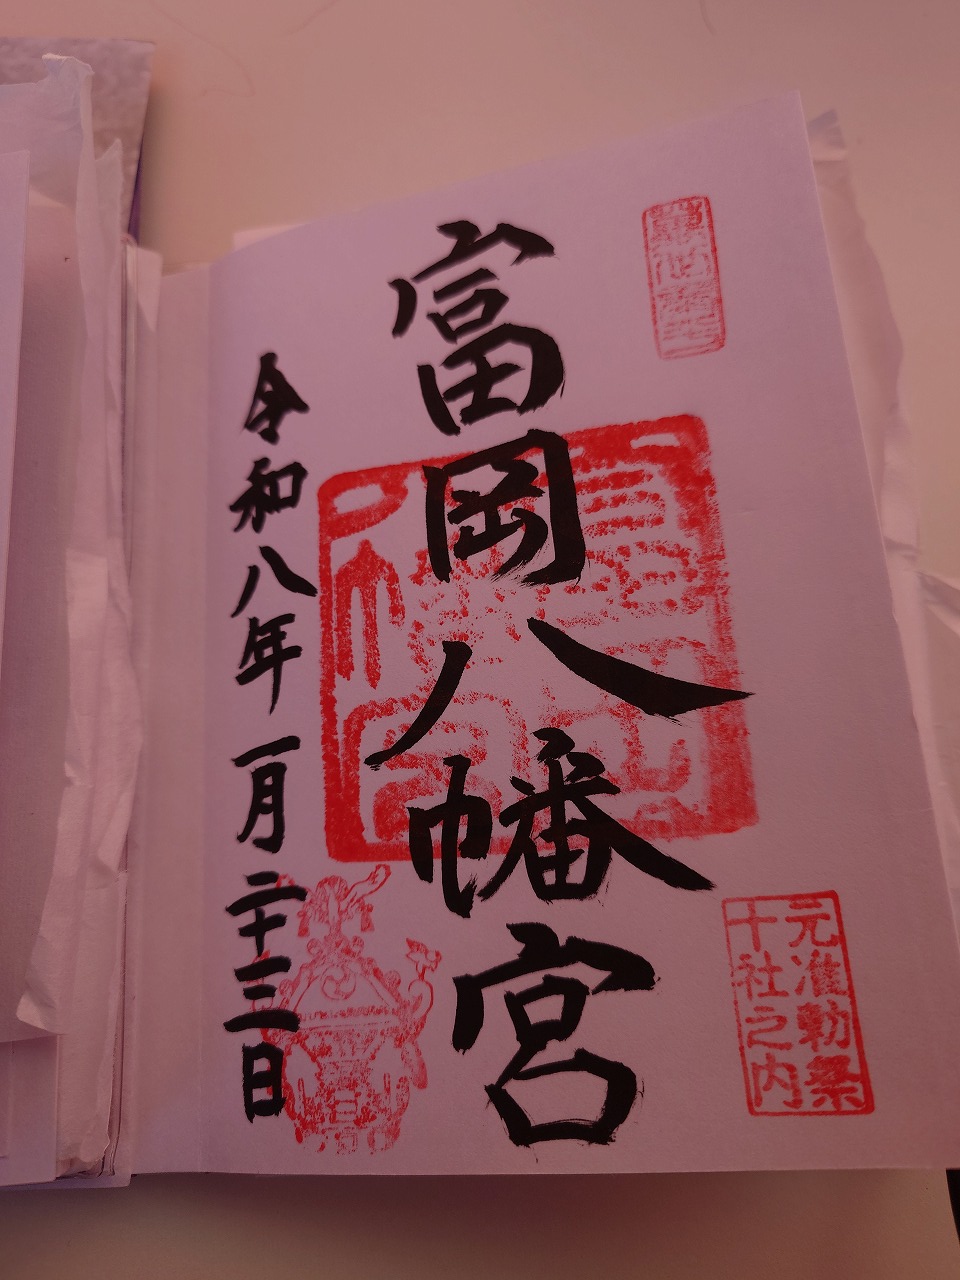 元准勅祭
十社之内
富岡八幡宮
令和八年一月二十三日